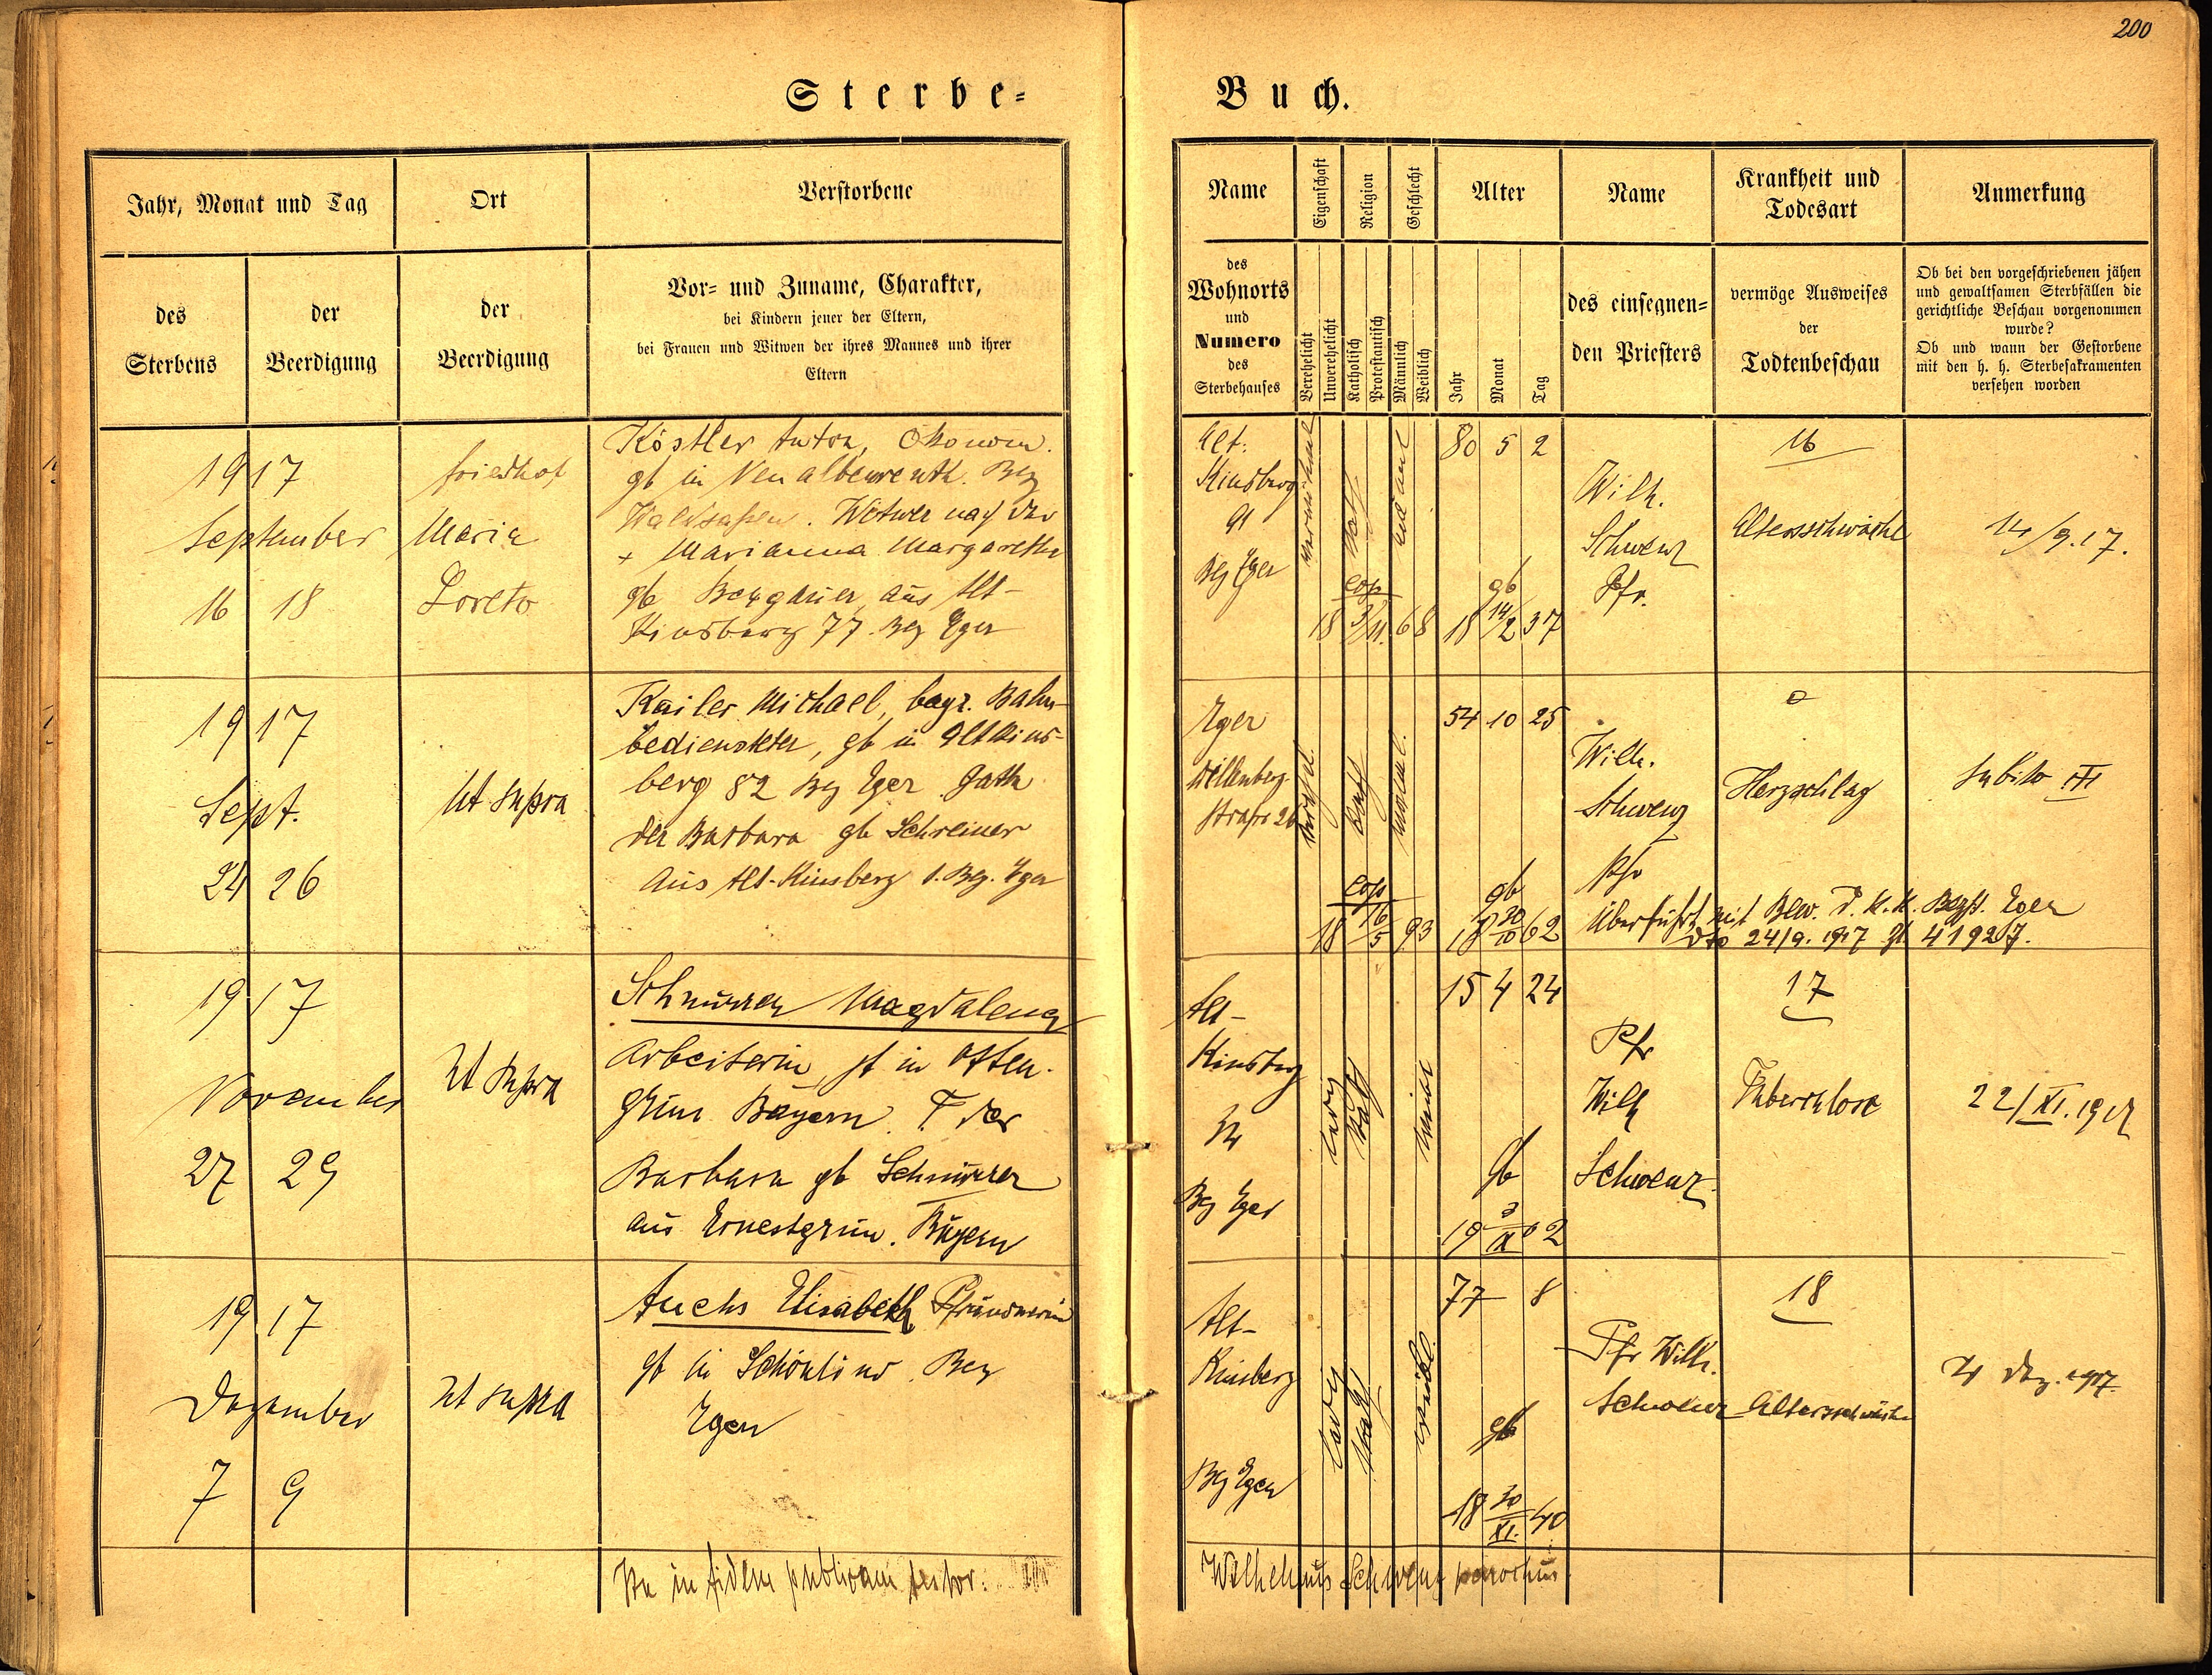 200
Sterbe-
Buch.
Jahr, Monat und Tag
Ort
Verstorbene
des Sterbens
der Beerdigung
der Beerdigung
Vor- und Zuname, Charakter,
bei Kindern jener der Eltern,
bei Frauen und Witwen der ihres Mannes und ihrer
Eltern
Name
Eigenschaft
Religion
Geschlecht
Alter
Name
Krankheit und
Todesart
Anmerkung
des
Wohnorts
und
Numero
des
Sterbehauses
Verehelicht
Unverehelicht
Katholisch
Protestantisch
Männlich
Weiblich
Jahr
Monat
Tag
des einsegnen-
den Priesters
vermöge Ausweises
der
Todtenbeschau
Ob bei den vorgeschriebenen jähen
und gewaltsamen Sterbfällen die
gerichtliche Beschau vorgenommen
wurde?
Ob und wann der Gestorbene
mit den h. h. Sterbesakramenten
versehen worden
1917
September
16 18
Friedhof
Maria
Loreto
Köstler Anton, Ökonom.
gb in Neualbenreuth. Bez
Waldsassen. Witwer nach der
+ Marianna Margaretha
gb aus Alt-
Kinsberg 77. Bez Eger
Alt-
Kinsberg
Bez Eger
kath
cop
18 3/11. 68
80 5 2
gb
18 14/2 37
Wilh.
Schwenz
Pfr.
16
Altersschwäche
14/9.17.
1917
Sept.
24 26
Ut supra
Kailer Michael, bayr. Bahn-
bediensteter, gb in Altkins-
berg 82 Bez Eger Gatte
der Barbara gb Schreiner
aus Alt-Kinsberg 1. Bez. Eger
Eger
strasse 26
cop
18 16/5 93
54 10 25
gb
18 30/10 62
Wilh.
Schwenz
Pfr
0
Herzschlag
subito
Überführt mit Bew. d. k. k. Bezh. Eger
dto 24/9. 1917 Zl 41927.
1917
November
27 29
Ut supra
Schnurrer Magdalena
Arbeiterin, gb in Otten-
grün Bayern. T der
Barbara gb Schnurrer
aus Ernestgrün. Bayern
Alt-
Kinsberg
Bez Eger
ledig
kath
15 4 24
gb
19 3/IX 02
Pfr
Wilh
Schwenz
17
Tuberkulose
22/XI. 1917
1917
Dezember
7 9
Ut supra
Fuchs Elisabeth Pfründnerin
gb in Schönlind. Bez
Eger
Alt-
Kinsberg
Bez Eger
ledig
kath
weibl.
77 8
gb
18 30/XI. 40
Pfr Wilh.
Schwenz
18
Altersschwäche
4 Dez. 1917.
Ita in fidem publicam testor:
Wilhelmus Schwenz parochus.